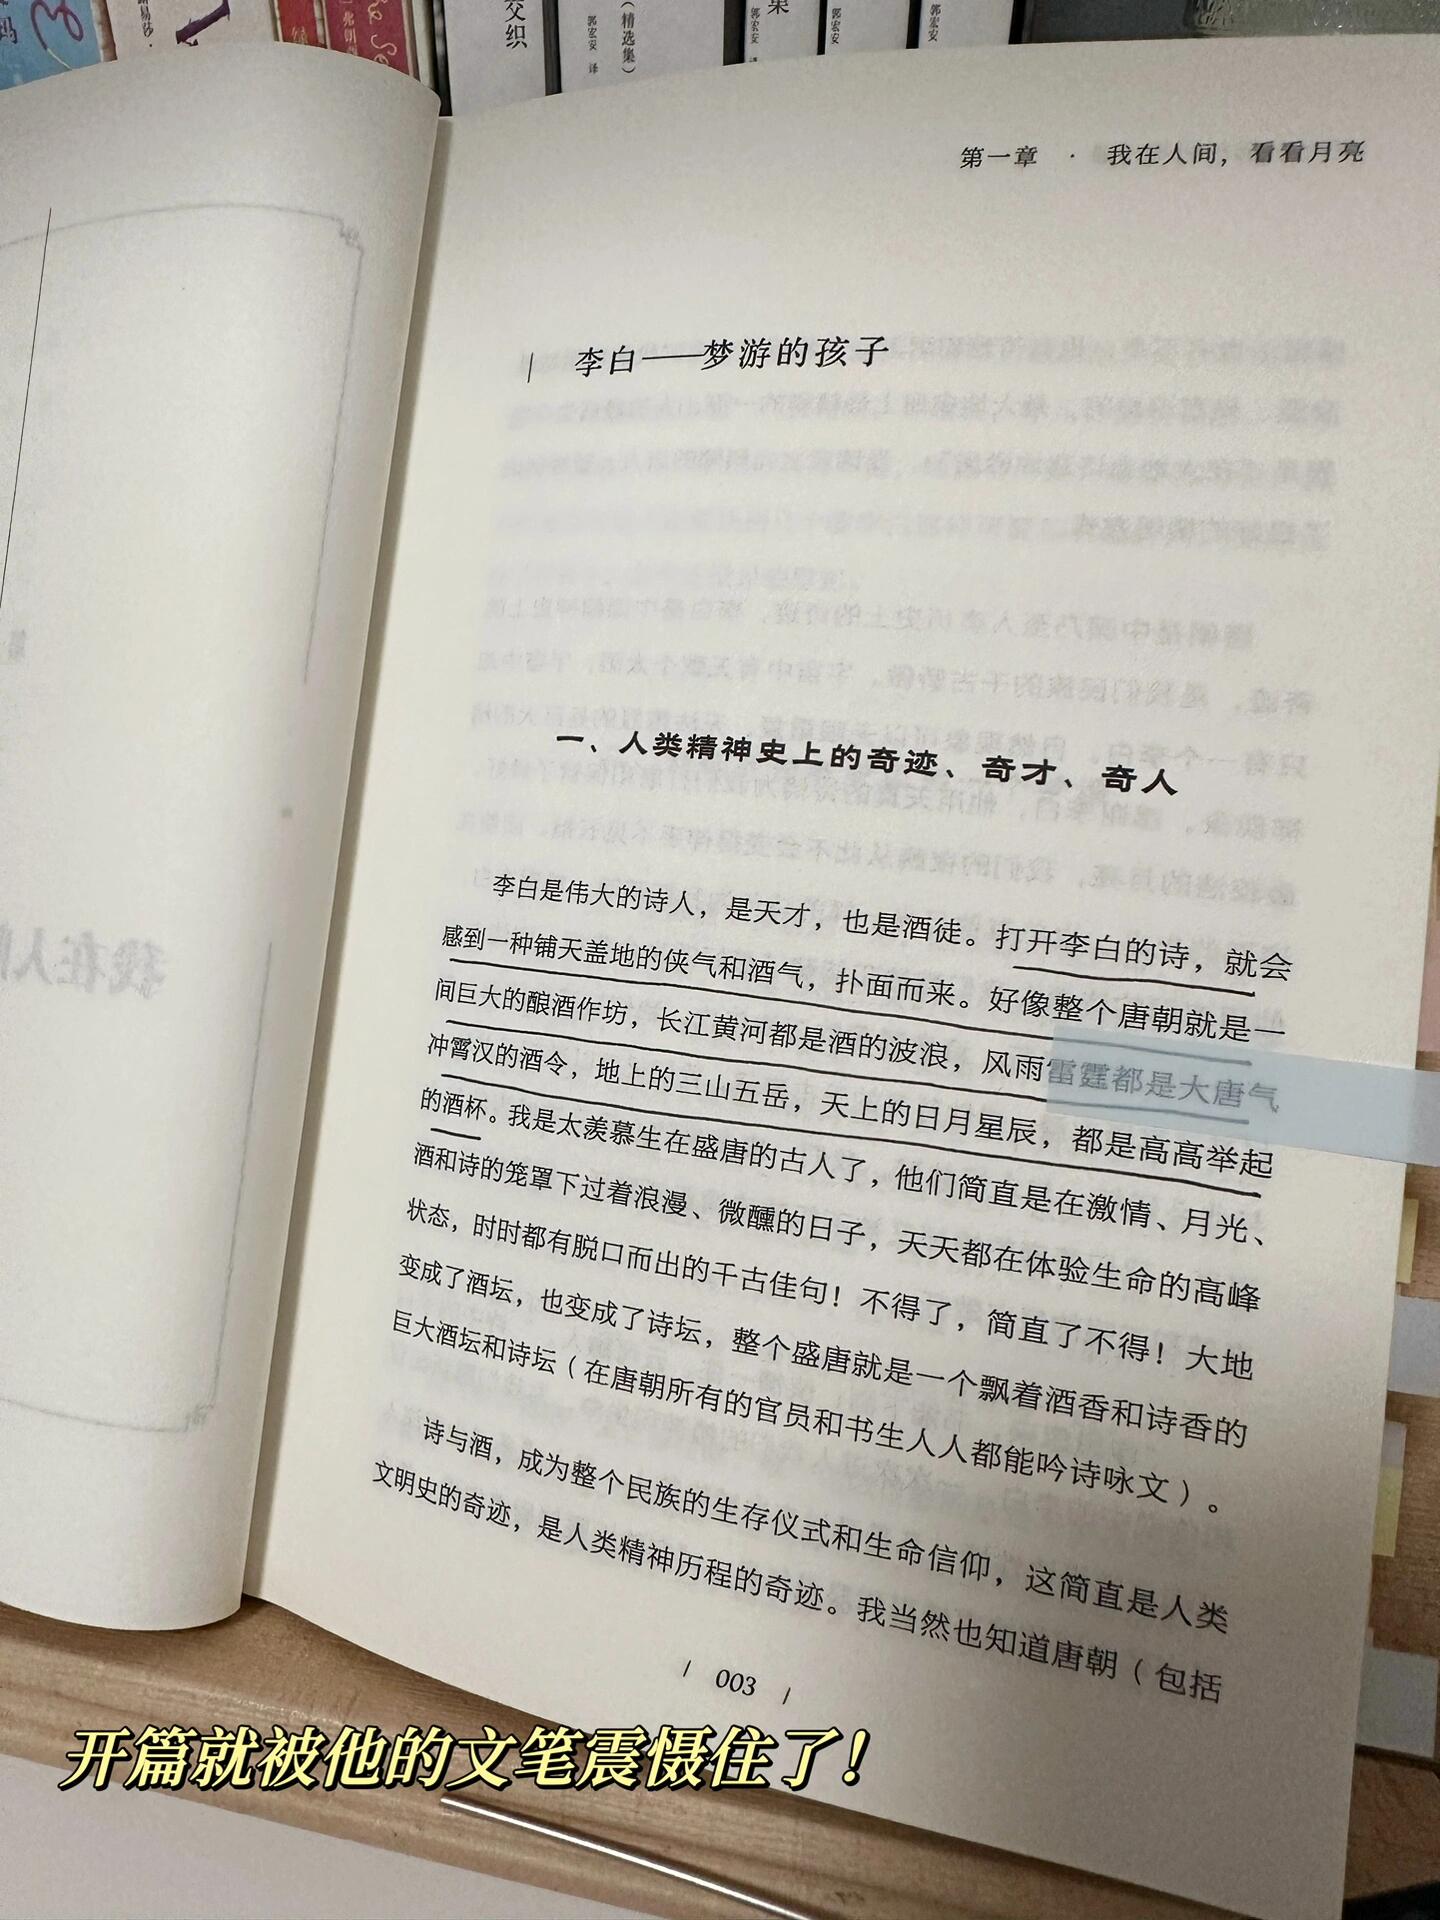 交织
（精选集）
郭宏安 译
郭宏安 译
郭宏安
郭宏安
第一章 · 我在人间，看看月亮
李白——梦游的孩子
一、人类精神史上的奇迹、奇才、奇人
李白是伟大的诗人，是天才，也是酒徒。打开李白的诗，就会
感到一种铺天盖地的侠气和酒气，扑面而来。好像整个唐朝就是一
间巨大的酿酒作坊，长江黄河都是酒的波浪，风雨雷霆都是大唐气
冲霄汉的酒令，地上的三山五岳，天上的日月星辰，都是高高举起
的酒杯。我是太羡慕生在盛唐的古人了，他们简直是在激情、月光、
酒和诗的笼罩下过着浪漫、微醺的日子，天天都在体验生命的高峰
状态，时时都有脱口而出的千古佳句！不得了，简直了不得！大地
变成了酒坛，也变成了诗坛，整个盛唐就是一个飘着酒香和诗香的
巨大酒坛和诗坛（在唐朝所有的官员和书生人人都能吟诗咏文）。
诗与酒，成为整个民族的生存仪式和生命信仰，这简直是人类
文明史的奇迹，是人类精神历程的奇迹。我当然也知道唐朝（包括
003
开篇就被他的文笔震慑住了！